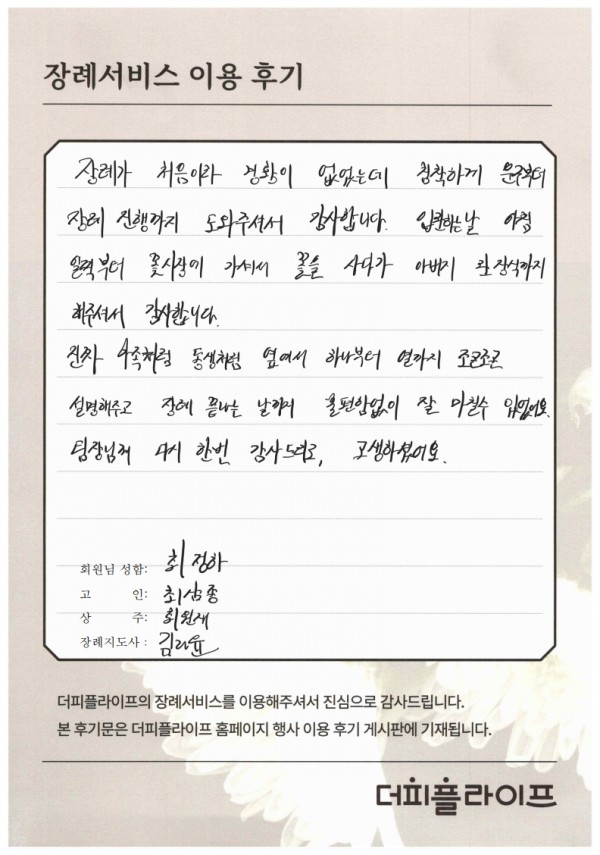 장례서비스 이용 후기
장례가 처음이라 경황이 없었는데 침착하게 운구부터
장례 진행까지 도와주셔서 감사합니다. 입관하는날 아침
일찍부터 꽃시장에 가셔서 꽃을 사다가 아버지 관장식까지
해주셔서 감사합니다.
진짜 가족처럼 동생처럼 옆에서 하나부터 열까지 조곤조곤
설명해주고 장례 끝나는 날까지 불편함없이 잘 마칠수 있었어요.
팀장님께 다시 한번 감사드려요, 고생하셨어요.
회원님 성함: 최정하
고 인: 최삼종
상 주: 최원재
장례지도사 : 김라윤
더피플라이프의 장례서비스를 이용해주셔서 진심으로 감사드립니다.
본 후기문은 더피플라이프 홈페이지 행사 이용 후기 게시판에 기재됩니다.
더피플라이프